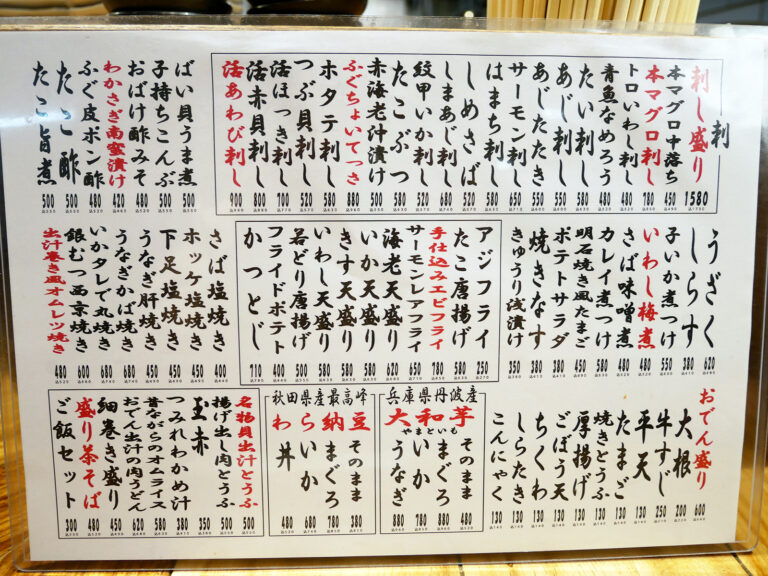 刺
刺し盛り 1580
本マグロ中落ち 450
本マグロ刺し 780
トロいわし刺し 480
青魚なめろう 680
たい刺し 580
あじ刺し 550
あじたたき 550
サーモン刺し 650
はまち刺し 580
しめさば 480
しまあじ刺し 680
紋甲いか刺し 520
たこぶつ 580
赤海老沖漬け 500
ふぐちょいてっさ 880
ホタテ刺し 580
つぶ貝刺し 520
活ほっき刺し 700
活赤貝刺し 800
活あわび刺し 900
ばい貝うま煮 500
子持ちこんぶ 500
おばけ酢みそ 480
わかさぎ南蛮漬け 420
ふぐ皮ポン酢 480
たこ酢 500
たこ旨煮 500
うざく 620
しらす 380
子いか煮つけ 480
いわし梅煮 480
さば味噌煮 480
カレイ煮つけ
明石焼き風たまご
ポテトサラダ 380
焼きなす 380
きゅうり浅漬け 350
アジフライ 250
たこ唐揚げ 580
手仕込みエビフライ
サーモンレアフライ
海老天盛り
いか天盛り
きす天盛り
いわし天盛り
若どり唐揚げ
フライドポテト 400
かつとじ 710
さば塩焼き 400
ホッケ塩焼き
下足塩焼き
うなぎ肝焼き
うなぎかば焼き
いかタレで丸焼き 680
銀むつ西京焼き 600
出汁巻き風オムレツ焼き 480
おでん盛り 600
大根 200
牛すじ 250
平天 130
たまご 130
焼きとうふ 130
厚揚げ 130
ごぼう天 130
ちくわ 130
しらたき 130
こんにゃく 130
兵庫県丹波産
大和芋
やまといも
そのまま 480
まぐろ 780
いか 780
うなぎ 880
秋田県産最高峰
わら納豆
そのまま 380
まぐろ 780
いか 680
丼 480
名物貝出汁とうふ 500
揚げ出し肉とうふ 500
玉赤 350
つみれわかめ汁 380
昔ながらのオムライス 580
おでん出汁の肉うどん
細巻き盛り 450
盛り茶そば 480
ご飯セット 300